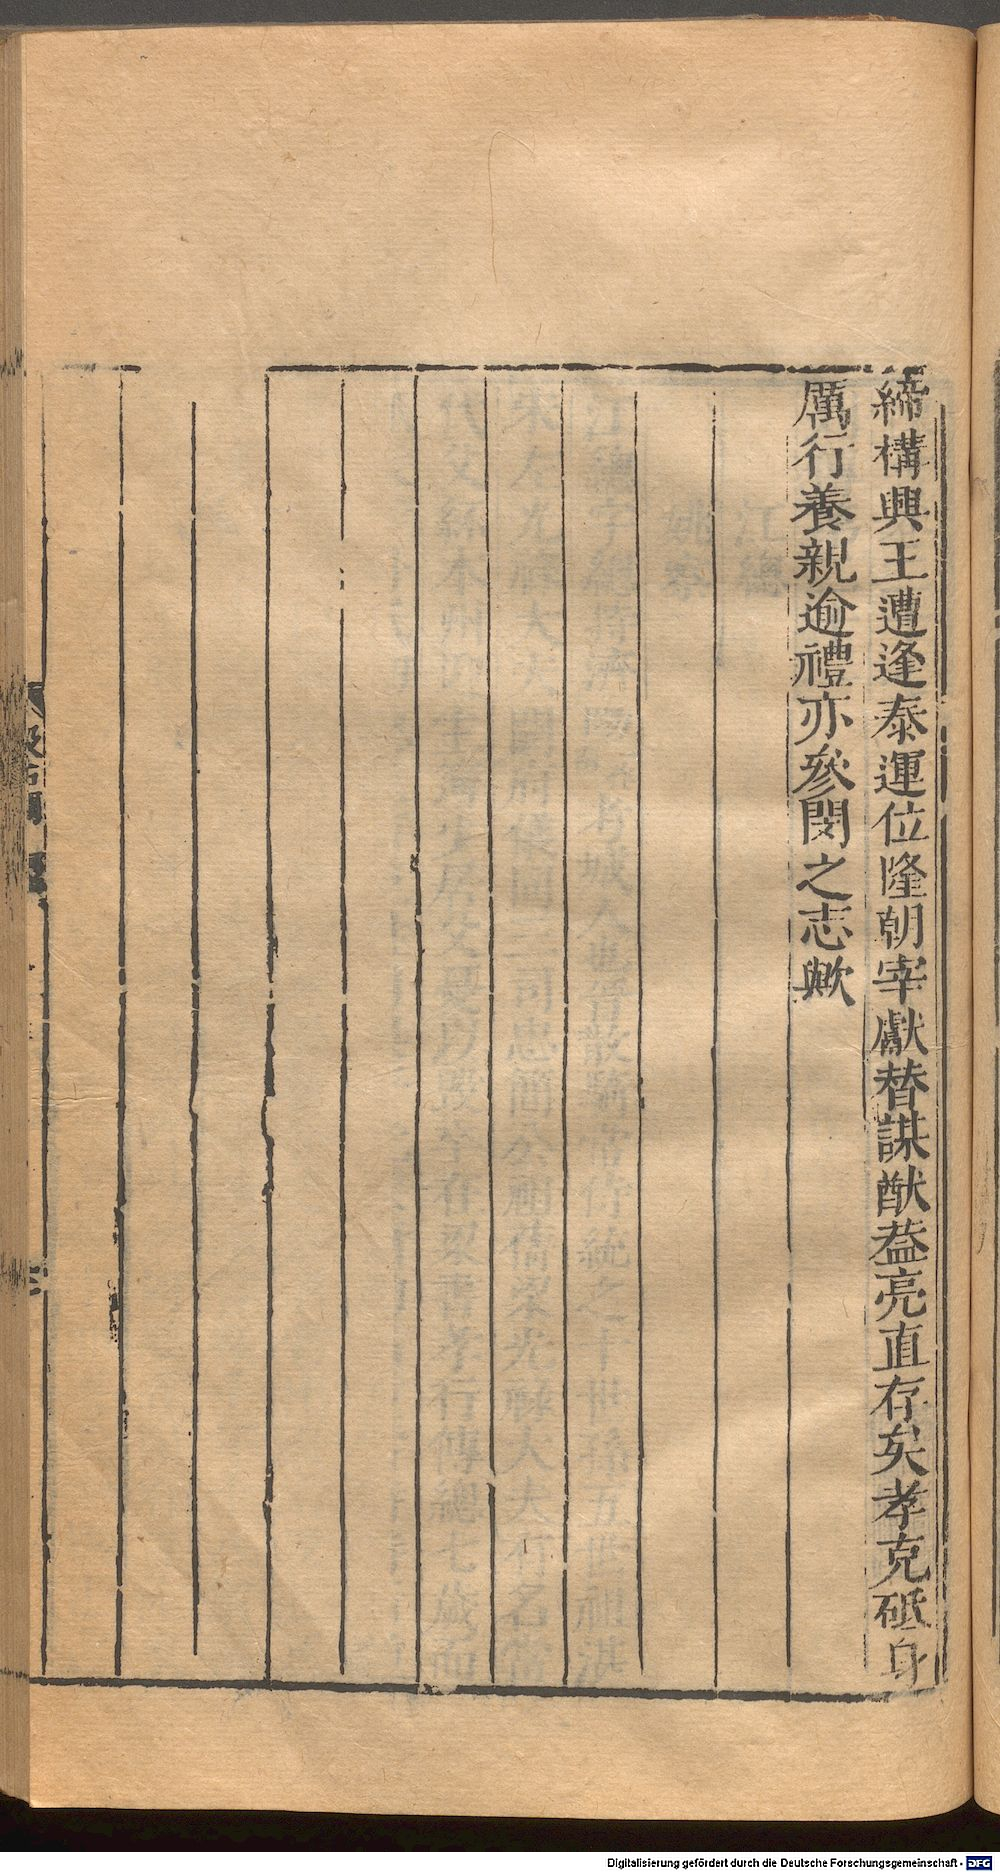 締構興王遭逢泰運位隆朝宰獻替謀猷葢亮直存矣孝克砥身
厲行養親逾禮亦參閔之志歟
Digitalisierung gefördert durch die Deutsche Forschungsgemeinschaft - DFG